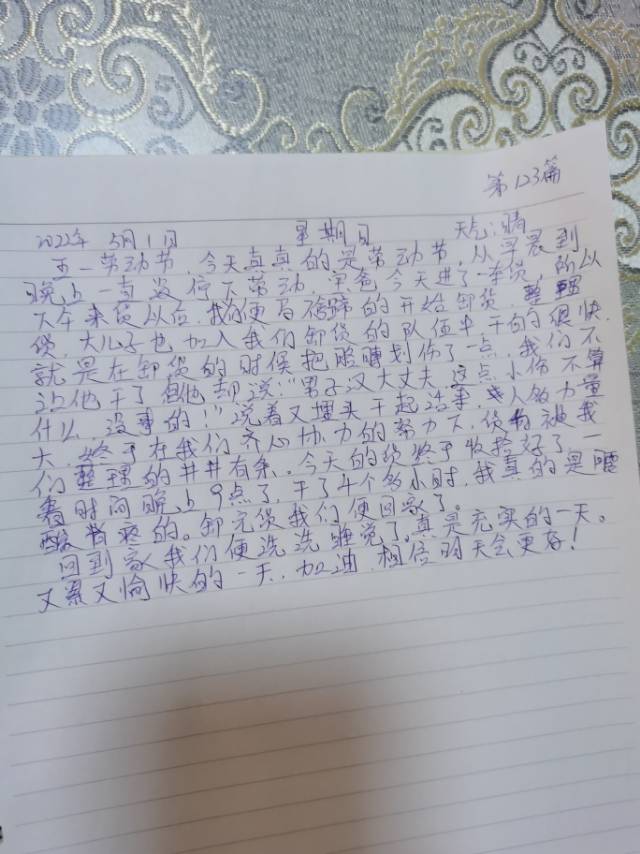 第123篇
2022年 5月1日 星期日 天气:晴
五一劳动节,今天真真的是劳动节,从早晨到
晚上一直没停下劳动,早爸今天进了一车货,所以
下午来货以后,我们便马不停蹄的开始卸货,整理
货,大儿子也加入我们卸货的队伍中干的很快
就是在卸货的时候把胳膊划伤了一点,我们不
让他干了但他却说:"男子汉大丈夫,这点小伤不算
什么,没事的!"说着又埋头干起活来 人多力量
大,终于在我们齐心协力的努力下,货物被我
们整理的井井有条,今天的货终于收拾好了,一
看时间晚上9点了,干了4个多小时,我真的是腰
酸背疼的。卸完货我们便回家了。
回到家我们便洗洗睡觉了,真是充实的一天。
又累又愉快的一天,加油,相信明天会更好!